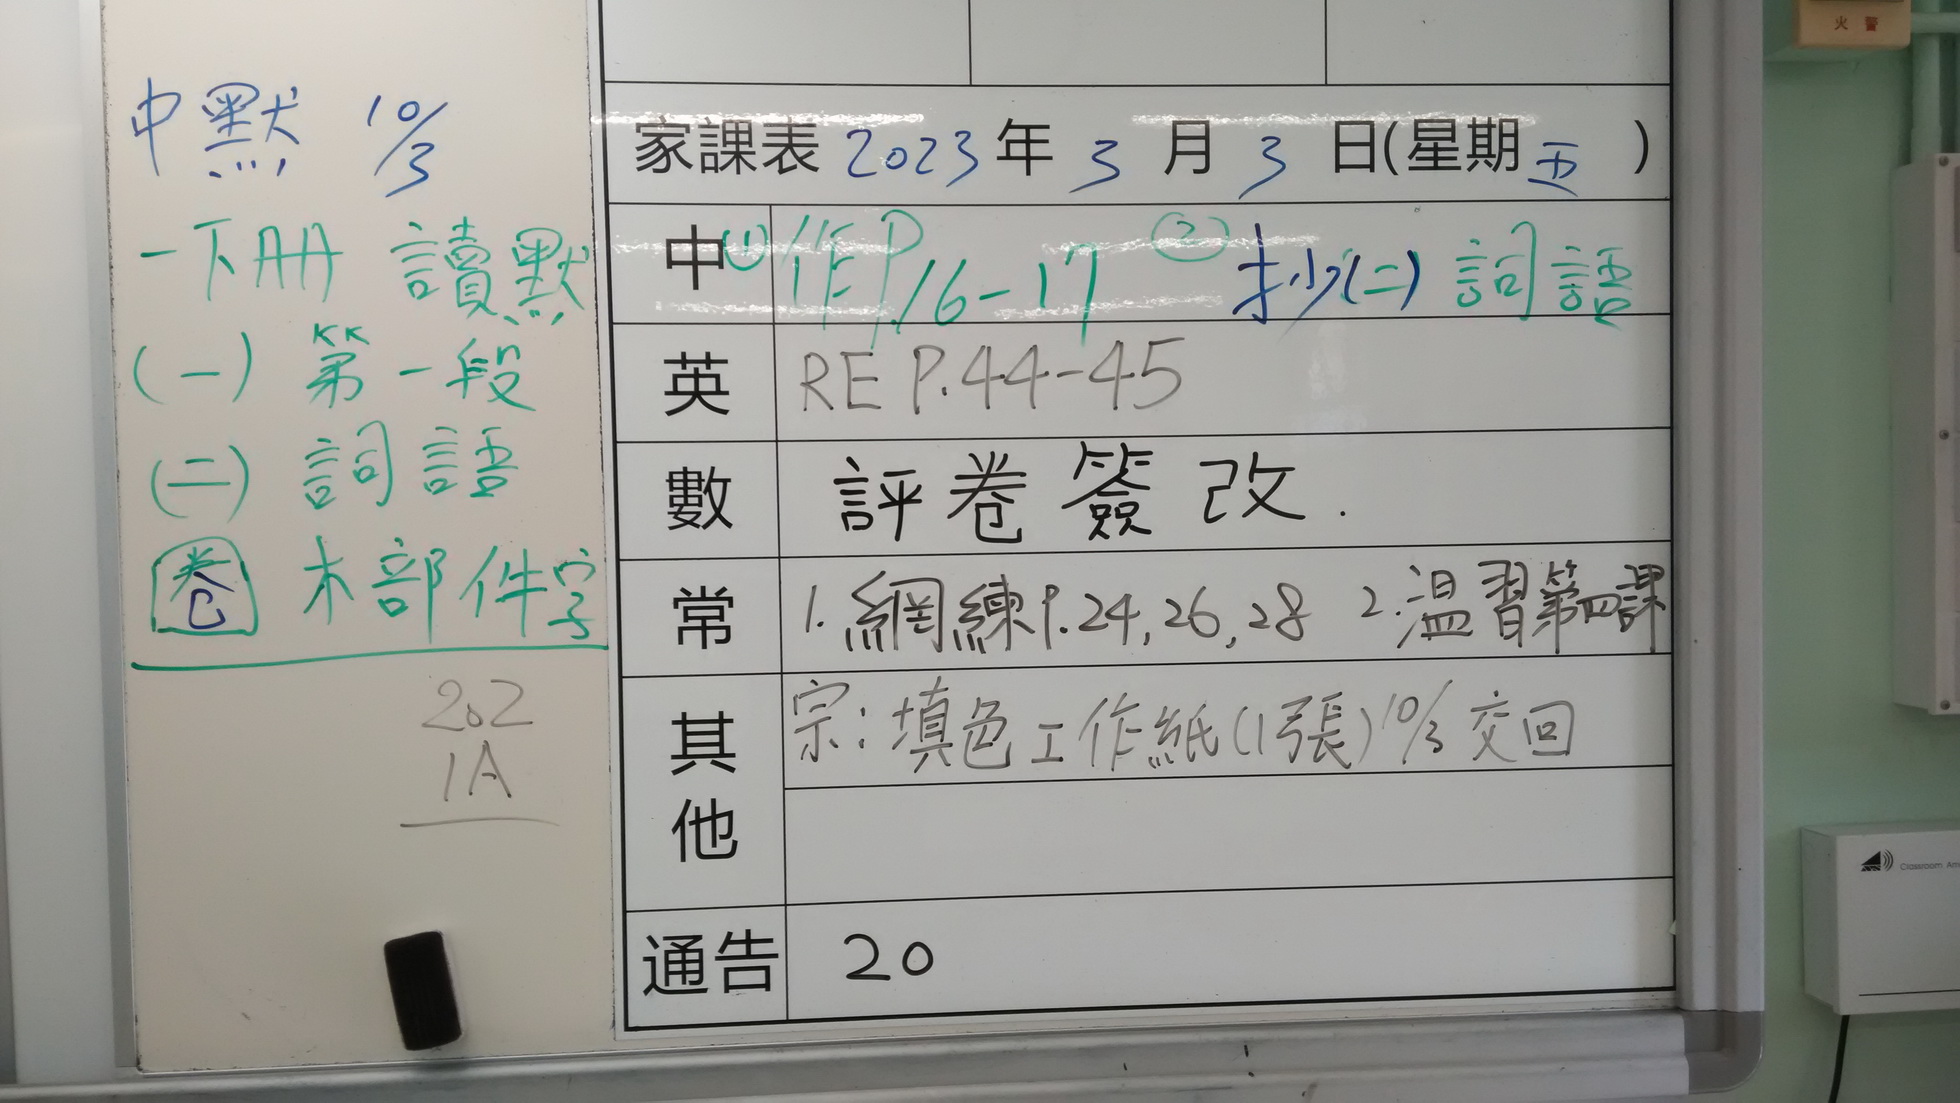 中默 10/3
一下冊 讀默
(一) 第一段
(二) 詞語
卷 木部件字
202
1A
家課表 2023年3月3日(星期五)
中 (1) 作P.16-17 (2) 抄(二)詞語
英 RE P.44-45
數 評卷簽改.
常 1.網練P.24,26,28 2.溫習第四課
其他 宗:填色工作紙(1張)10/3交回
通告 20
火警